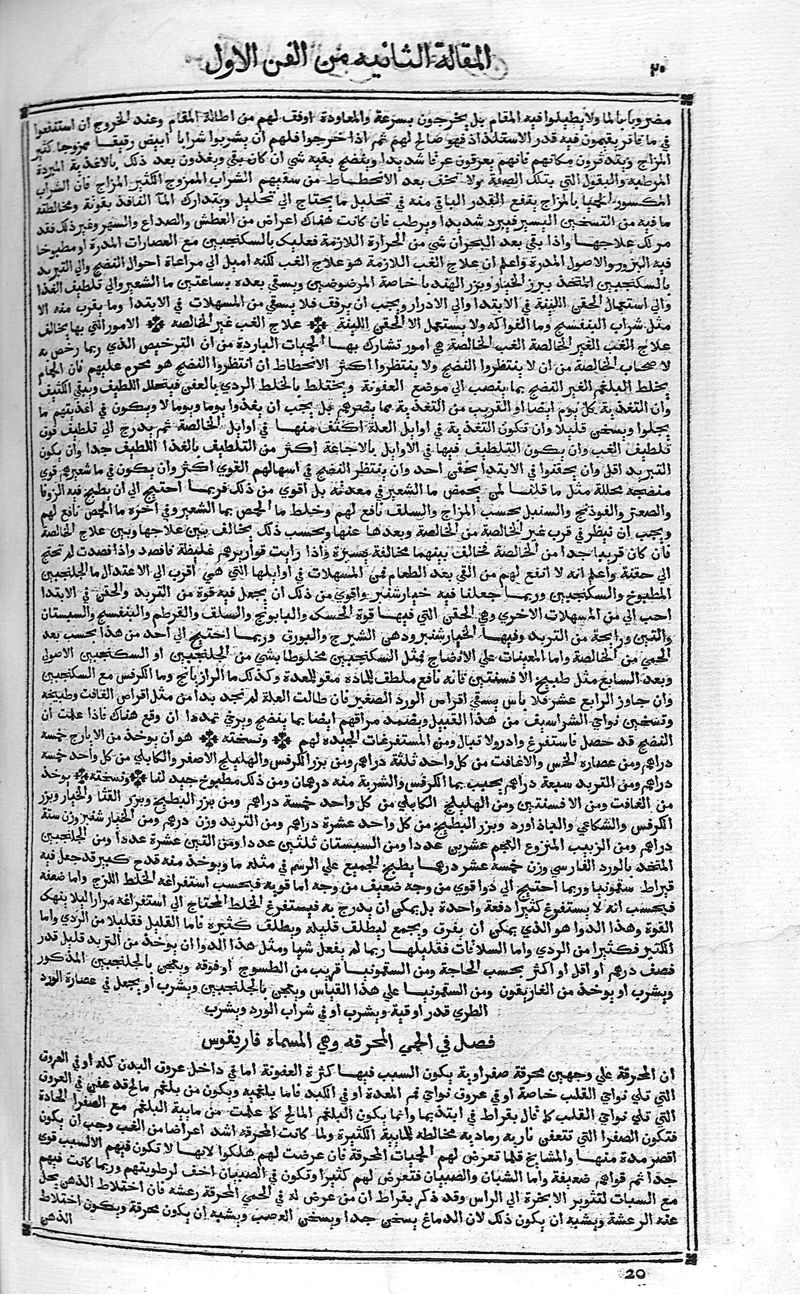 ٢٠
المقالة الثانيه من الفن الاول
مضروبا بالما ولا يطيلوا فيه المقام بل يخرجون بسرعة والمعاودة اوفق لهم من اطالة المقام وعند الخروج ان استنقعوا
في ما فاتر يقيمون فيه قدر الاستلذاذ فهو صالح لهم ثم اذا خرجوا فلهم ان يشربوا شرابا ابيض رقيقا ممزوجا كثير
المزاج ويتدثرون مكانهم فانهم يعرقون عرقا شديدا وينضج بقيه شي ان كان بقي ويغذون بعد ذلك بالاغذية المبردة
المرطبه والبقول التي بتلك الصفة ولا تخف بعد الانحطاط من سقيهم الشراب الممزوج الكثير المزاج فان الشراب
المكسور الحميا بالمزاج ينفع القدر الباقي منه في تحليل ما يحتاج الي تحليل ويتدارك الما النافذ بقوته ومخالطته
ما فيه من التسخين اليسير فيبرد شديدا ويرطب فان كانت هناك اعراض من العطش والصداع والسهر وغير ذلك فقد
مر لك علاجها واذا بقي بعد البحران شي من الحرارة اللازمة فعليك بالسكنجبين مع العصارات المدرة او مطبوخا
فيه البزور والاصول المدرة واعلم ان علاج الغب اللازمة هو علاج الغب لكنه اميل الي مراعاة احوال النضج والي التبريد
بالسكنجبين المتخذ ببزر الخيار وبزر الهندبا خاصة المرضوضين ويسقي بعده بساعتين ما الشعير والي تلطيف الغذا
والي استعمال الحقن اللينة في الابتدا والي الادرار ويجب ان يرفق فلا يسقي من المسهلات في الابتدا وما يقرب منه الا
مثل شراب البنفسج وما الفواكه ولا يستعمل الا الحقن اللينة علاج الغب غير الخالصة الامور التي بها يخالف
علاج الغب الغير الخالصة الغب الخالصة هي امور تشارك بها الحميات الباردة من ان الترخيص الذي ربما رخص به
لاصحاب الخالصة من ان لا ينتظروا النضج ولا ينتظروا اكثر الانحطاط ان انتظروا النضج هو محرم عليهم فان الحمام
يخلط البلغم الغير النضج بما ينصب الي موضع العفونة ويختلط بالخلط الردي بالعفن فيتحلل اللطيف ويبقي الكثيف
وان التغذية كل يوم ايضا او القريب من التغذية مما يضرهم بل يجب ان يغذوا يوما ويوما لا ويكون في اغذيتهم ما
يجلوا ويسخن قليلا وان تكون التغذية في اوايل العلة اكثف منها في اوايل الخالصة ثم يدرج الي تلطيف فوق
تلطيف الغب وان يكون التلطيف فيها في الاوايل بالاجاعة اكثر من التلطيف بالغذا اللطيف جدا وان يكون
التبريد اقل وان يحقنوا في الابتدا بحقن احد وان ينتظر النضج في اسهالهم القوي اكثر وان يكون في ما شعيرهم قوي
منضجة محللة مثل ما قلنا لمن يحمض ما الشعير في معدته بل اقوي من ذلك فربما احتيج الي ان يطبخ فيه الزوفا
والصعتر والفوذنج والسنبل بحسب المزاج والسلق نافع لهم وخلط ما الحمص بما الشعير وفي اخره ما الحمص نافع لهم
ويجب ان تنظر في قرب غير الخالصة من الخالصة وبعدها عنها وبحسب ذلك يخالف بين علاجها وبين علاج الخالصة
فان كان قريبا جدا من الخالصة فخالف بينهما مخالفة يسيرة واذا رايت قواريرهم غليظة فافصد واذا فصدت لم تحتج
الي حقنة واعلم انه لا انفع لهم من القي بعد الطعام فمن المسهلات في اوايلها التي هي اقرب الي الاعتدال ما الجلنجبين
المطبوخ والسكنجبين وربما جعلنا فيه خيارشنبر واقوي من ذلك ان يجعل فيه قوة من التربد والحقن في الابتدا
احب الي من المسهلات الاخري وهي الحقن التي فيها قوة الحسك والبابونج والسلق والقرطم والبنفسج والسبستان
والتين ورايحة من التربد وفيها الخيارشنبر ودهن الشيرج والبورق وربما احتيج الي احد من هذا بحسب بعد
الحمي من الخالصة واما المعينات علي الانضاج فمثل السكنجبين مخلوطا بشي من الجلنجبين او السكنجبين الاصولي
وبعد السابع مثل طبيخ الافسنتين فانه نافع ملطف للمادة مقو للمعدة وكذلك ما الرازيانج وما الكرفس مع السكنجبين
وان جاوز الرابع عشر فلا باس بسقي اقراص الورد الصغير فان طالت العلة لم تجد بدا من مثل اقراص الغافت وطبيخه
وتسخين نواي الشراسيف من هذا القبيل ويضمد مراقهم ايضا بما ينضج ويرخي تمددا ان وقع هناك فاذا علمت ان
النضج قد حصل فاستفرغ وادر ولا تبال ومن المستفرغات الجيده لهم ونسخته هو ان يوخذ من الايارج خمسة
دراهم ومن عصاره الخس والاغافت من كل واحد ثلثة دراهم ومن بزر الكرفس والهليلج الاصفر والكابلي من كل واحد خمسة
دراهم ومن التربد سبعة دراهم يحبب بما الكرفس والشربة منه درهمان ومن ذلك مطبوخ جيد لنا ونسخته يوخذ
من الغافت ومن الافسنتين ومن الهليلج الكابلي من كل واحد خمسة دراهم ومن بزر البطيخ وبزر القثا والخيار وبزر
الكرفس والشكاعي والباذاورد وبزر البطيخ من كل واحد عشرة دراهم ومن التربد وزن درهم ومن الخيارشنبر وزن ستة
دراهم ومن الزبيب المنزوع العجم عشرين عددا ومن السبستان ثلثين عددا ومن التين عشرة عددا ومن الجلنجبين
المتخذ بالورد الفارسي وزن خمسة عشر درهما يطبخ الجميع علي الرسم في مثله ما ويوخذ منه قدح كبير قد جعل فيه
قيراط سقمونيا وربما احتيج الي دوا قوي من وجه ضعيف من وجه اما قويه فبحسب استفراغه الخلط اللزج واما ضعفه
فبحسب انه لا يستفرغ كثيرا دفعة واحدة بل يمكن ان يدرج به فيستفرغ الخلط المحتاج الي استفراغه مرارا ليلا ينهك
القوة وهذا الدوا هو الذي يمكن ان يفرق ويجمع ليطلق قليله ويطلق كثيره فاما القليل فقليلا من الردي واما
الكثير فكثيرا من الردي واما السلاقات فقليلها ربما لم يفعل شيا ومثل هذا الدوا ان يوخذ من التربد قليل قدر
نصف درهم او اقل او اكثر بحسب الحاجة ومن السقمونيا قريب من الطسوج او فوقه ويعجن بالجلنجبين المذكور
ويشرب او يوخذ من الغاريقون ومن السقمونيا علي هذا القياس ويعجن بالجلنجبين ويشرب او يجعل في عصارة الورد
الطري قدر اوقية ويشرب او في شراب الورد ويشرب
فصل في الحمي المحرقه وهي المسماة فاريقوس
ان المحرقة علي وجهين محرقة صفراوية يكون السبب فيها كثرة العفونة اما في داخل عروق البدن كله او في العروق
التي تلي نواي القلب خاصة او في عروق نواي فم المعدة او في الكبد فاما بلغميه ويكون من بلغم مالح قد عفن في العروق
التي تلي نواي القلب كما قال بقراط في ابتديميا وانما يكون البلغم المالح كما علمت من مايية البلغم مع الصفرا الحادة
فتكون الصفرا التي تتعفن ناريه رماديه مخالطه للمايية الكثيرة ولما كانت المحرقه اشد اعراضا من الغب وجب ان يكون
اقصر مدة منها والمشايخ قلما تعرض لهم الحميات المحرقة فان عرضت لهم هلكوا لانها لا تكون فيهم الا لسبب قوي
جدا ثم قواهم ضعيفة واما الشبان والصبيان فتعرض لهم كثيرا وتكون في الصبيان اخف لرطوبتهم وربما كانت فيهم
مع السبات لتثوير الابخرة الي الراس وقد ذكر بقراط ان من عرض له في الحمي المحرقة رعشه فان اختلاط الذهن يحل
عنه الرعشة ويشبه ان يكون ذلك لان الدماغ يسخن جدا ويسخن العصب ويشبه ان يكون محرقة ويكون اختلاط
الذهن
20